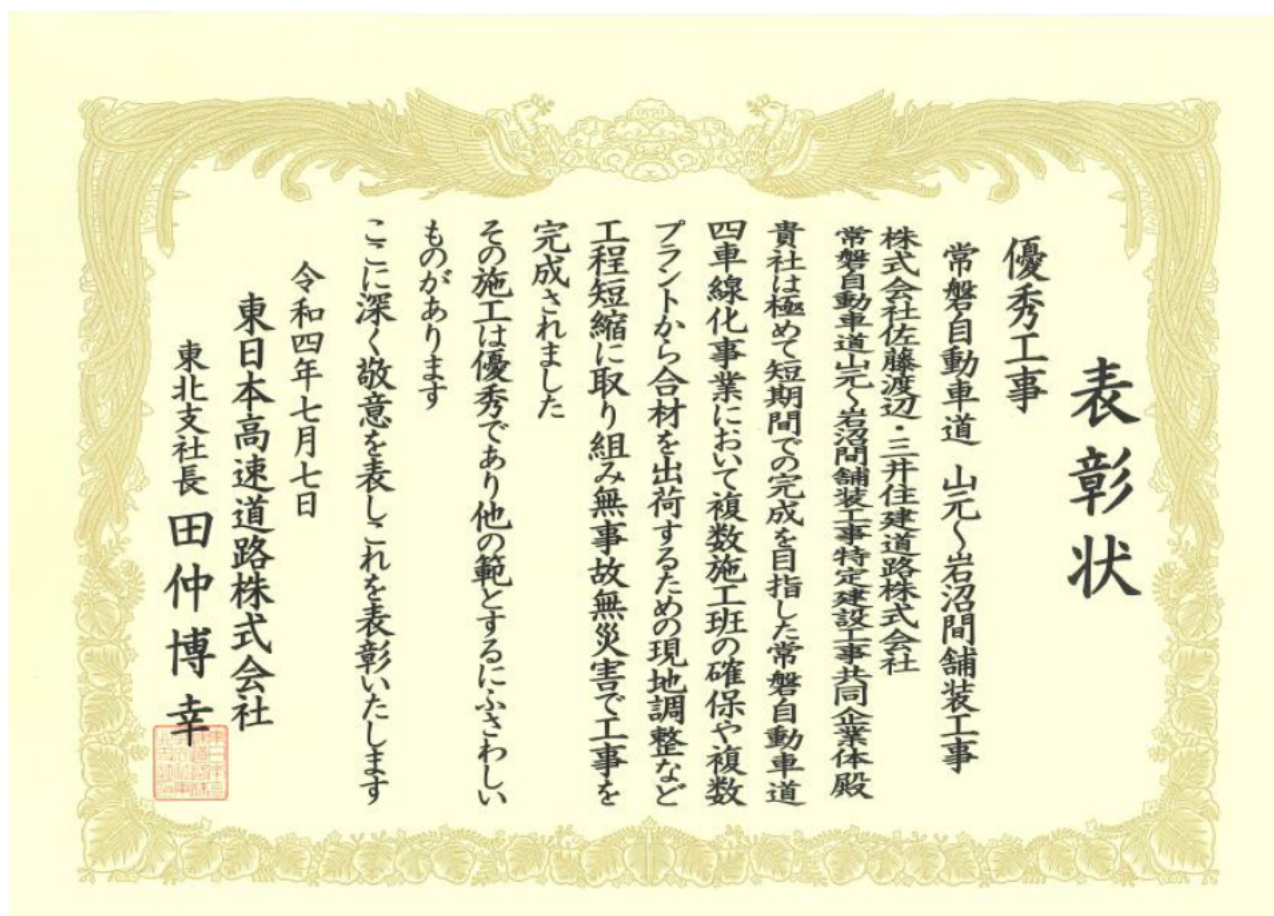 表彰状
優秀工事
常磐自動車道 山元~岩沼間舗装工事
株式会社佐藤渡辺・三井住建道路株式会社
常磐自動車道山元~岩沼間舗装工事特定建設工事共同企業体殿
貴社は極めて短期間での完成を目指した常磐自動車道
四車線化事業において複数施工班の確保や複数
プラントから合材を出荷するための現地調整など
工程短縮に取り組み無事故無災害で工事を
完成されました
その施工は優秀であり他の範とするにふさわしい
ものがあります
ここに深く敬意を表しこれを表彰いたします
令和四年七月七日
東日本高速道路株式会社
東北支社長 田仲博幸